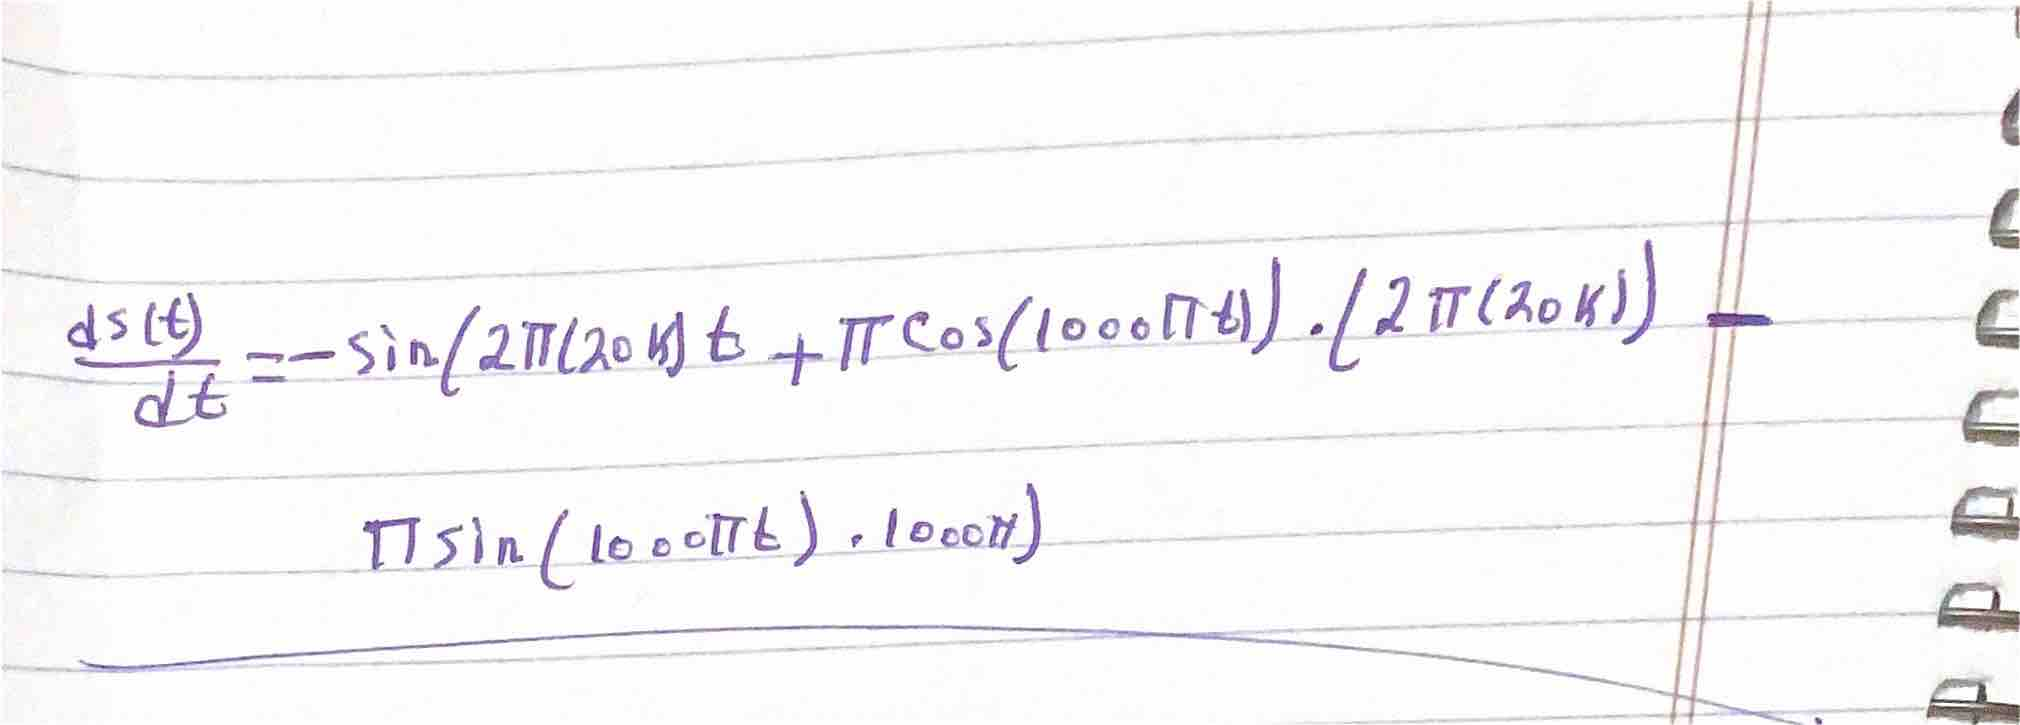 ds(t)/dt = - sin(2π(20k)t + π cos(1000πt)) · (2π(20k)) -
π sin(1000πt) · 1000π)